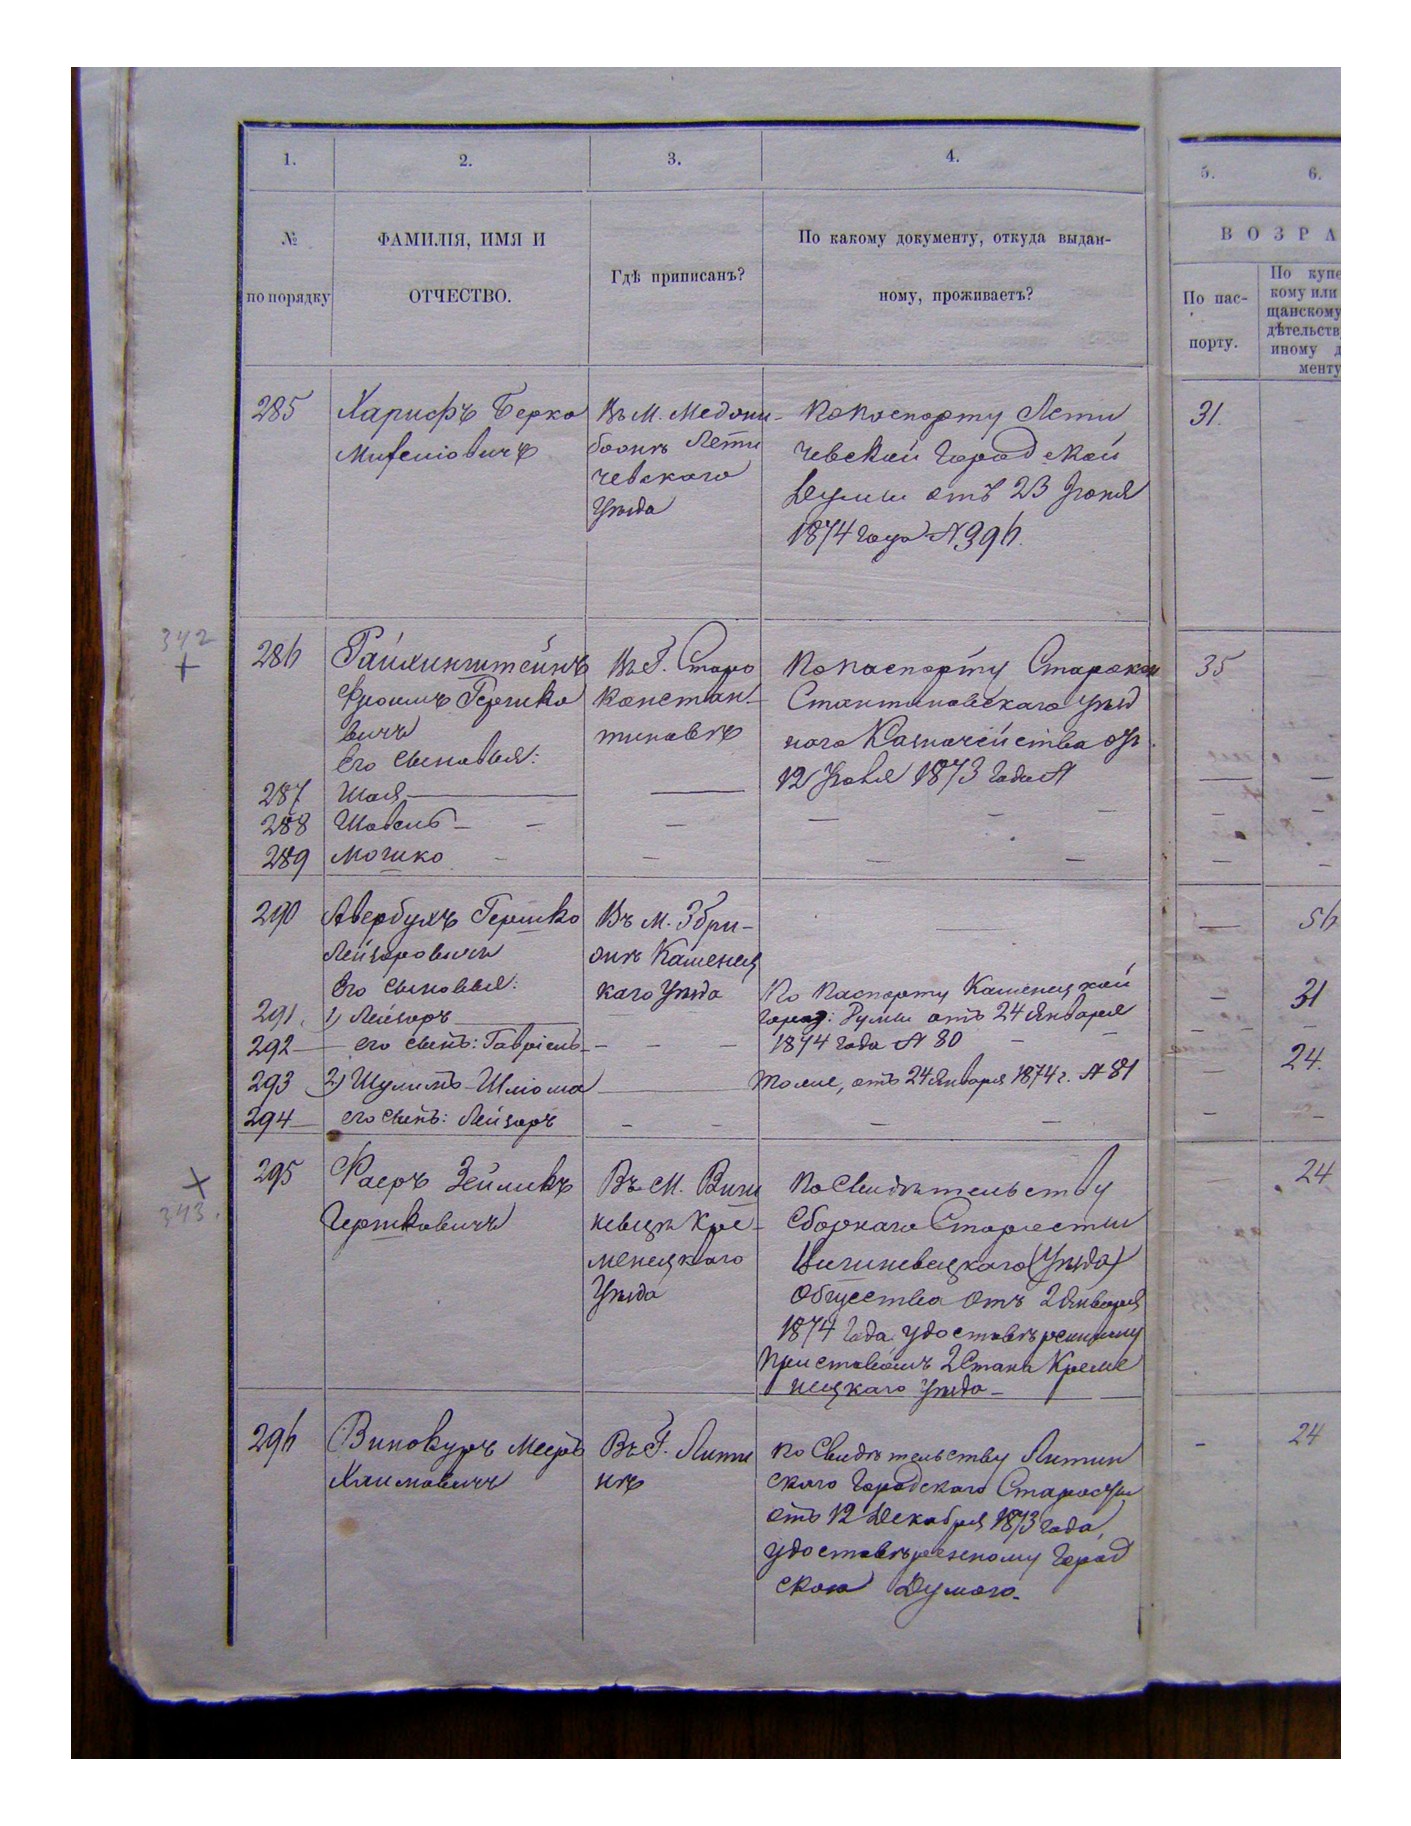 1. 2. 3. 4. 5. 6.
№
по порядку
ФАМИЛІЯ, ИМЯ И
ОТЧЕСТВО.
Гдѣ приписанъ?
По какому документу, откуда выдан-
ному, проживаетъ?
ВОЗРА
По пас-
порту.
По купе
кому или
щанскому
дѣтельств
иному д
менту
285
Харифъ Берко
Въ м. Медожи-
божѣ Лети
чевскаго
Уѣзда
По паспорту Лети
чевской Городской
Думы отъ 23 Іюня
1874 года № 396.
31.
342
+
286
Файхинштейнъ
Фроимъ Гершко
вичъ
Его сыновья:
Въ Г. Старо
Констан-
тиновѣ
По паспорту Старокон
Стантиновскаго уѣзд
наго Казначейства отъ
12 Іюня 1873 года №
35
287 Шая
288 Шавель
289 Мошко
290
Авербухъ Гершко
Лейзоровичъ
Его сыновья:
Въ м. Збри-
жѣ Каменец
каго Уѣзда
56
291. 1) Лейзоръ
По паспорту Каменецкой
Город: Думы отъ 24 Января
1874 года № 80
31
292 его сынъ: Гавріель
293 2) Шулимъ-Шліома
тоже, отъ 24 Января 1874 г. № 81
24.
294 его сынъ: Лейзоръ
+
343.
295
Фаеръ Зейликъ
Гершковичъ
Въ м. Виш
невцѣ Кре-
менецкаго
Уѣзда
По Свидѣтельству
Сборнаго Старосты
Вишневецкаго (Уѣзда)
Общества отъ 2 Января
1874 года удостовѣренному
Приставомъ 2 Стана Креме
нецкаго Уѣзда
24
296
Винокуръ Мееръ
Хаимовичъ
Въ Г. Лити
нѣ
по Свидѣтельству Литин
скаго Городскаго Старосты
отъ 12 Декабря 1873 года,
удостовѣренному Город
скою Думою.
24